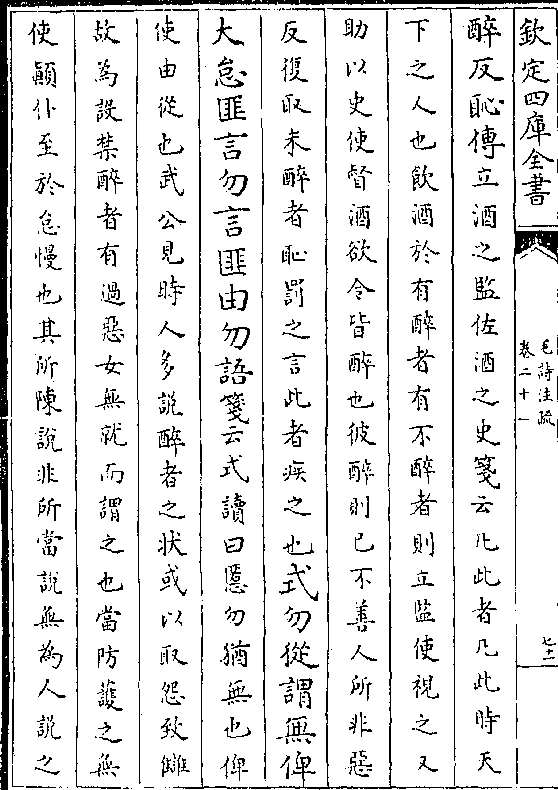 欽定四庫全書
毛詩注疏
卷二十一
七十二
醉反恥傳立酒之監佐酒之史箋云凡此者凡此時天
下之人也飲酒於有醉者有不醉者則立監使視之又
助以史使督酒欲令皆醉也彼醉則已不善人所非惡
反復取未醉者恥罰之言此者疾之也式勿從謂無俾
大怠匪言勿言匪由勿語箋云式讀曰慝勿猶無也俾
使由從也武公見時人多說醉者之狀或以取怨致讎
故為設禁醉者有過惡女無就而謂之也當防護之無
使顛仆至於怠慢也其所陳說非所當說無為人說之